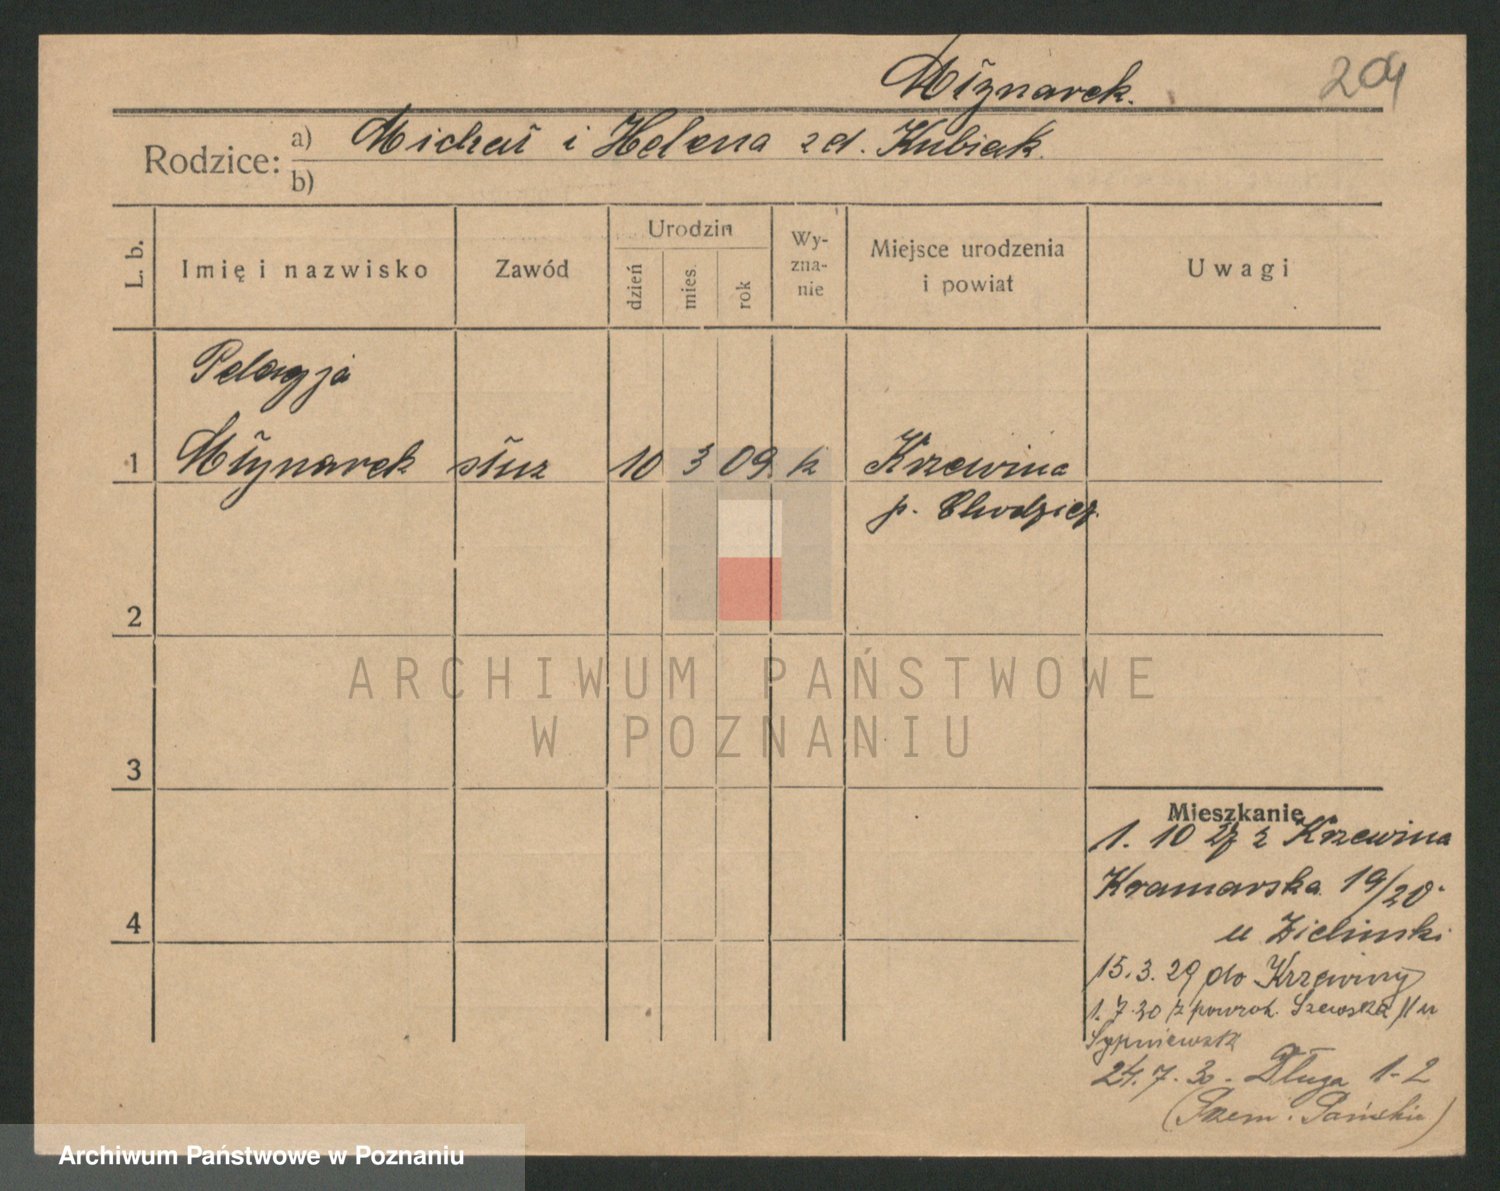 Młynarek.
204
Rodzice: a) Michał i Helena zd. Kubiak.
b)
L. b.
Imię i nazwisko
Zawód
Urodzin
dzień
mies.
rok
Wy-
zna-
nie
Miejsce urodzenia
i powiat
Uwagi
Pelagja
1 Młynarek służ 10 3 09. k Krzewina
p. Chodzież.
2
ARCHIWUM PAŃSTWOWE
W POZNANIU
3
Mieszkanie
1. 10 27 z Krzewina
4
Kramarska 19/20.
u Zielinski
15.3.29 do Krzewiny
1.7.30 z powrot. Szewska 11 u
Sypniewsk
24.7.30 - Długa 1-2
( Pańskie)
Archiwum Państwowe w Poznaniu